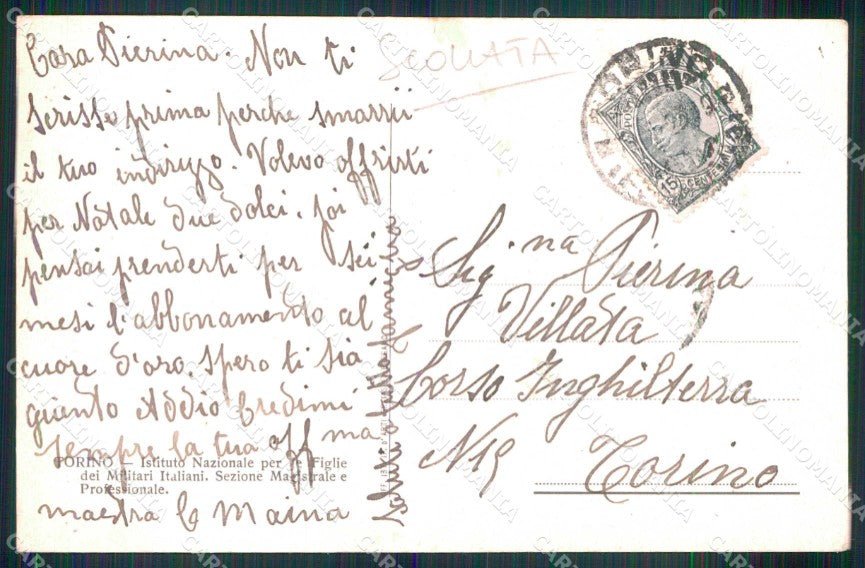 Cara Pierina. Non ti
scrissi prima perche smarrii
il tuo indirizzo. Volevo offrirti
per Natale due dolci. poi
pensai prenderti per sei
mesi l'abbonamento al
cuore d'oro. spero ti sia
giunto Addio Credimi
sempre la tua aff ma
maestra C Maina
TORINO - Istituto Nazionale per le Figlie
dei Militari Italiani. Sezione Magistrale e
Professionale.
Saluti a tutta famiglia
SCOLLATA
15
Sig.na Pierina
Villata
Corso Inghilterra
N 19 Torino
CARTOLINOMANIA